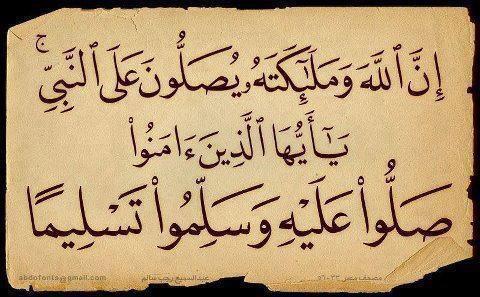 إِنَّ ٱللَّهَ وَمَلَـٰٓئِكَتَهُۥ يُصَلُّونَ عَلَى ٱلنَّبِىِّ ۚ
يَـٰٓأَيُّهَا ٱلَّذِينَ ءَامَنُوا۟
صَلُّوا۟ عَلَيْهِ وَسَلِّمُوا۟ تَسْلِيمًا
مصحف مصر ٣٣-٥٦ عبدالسميع رجب سالم abdofonts@gmail.com